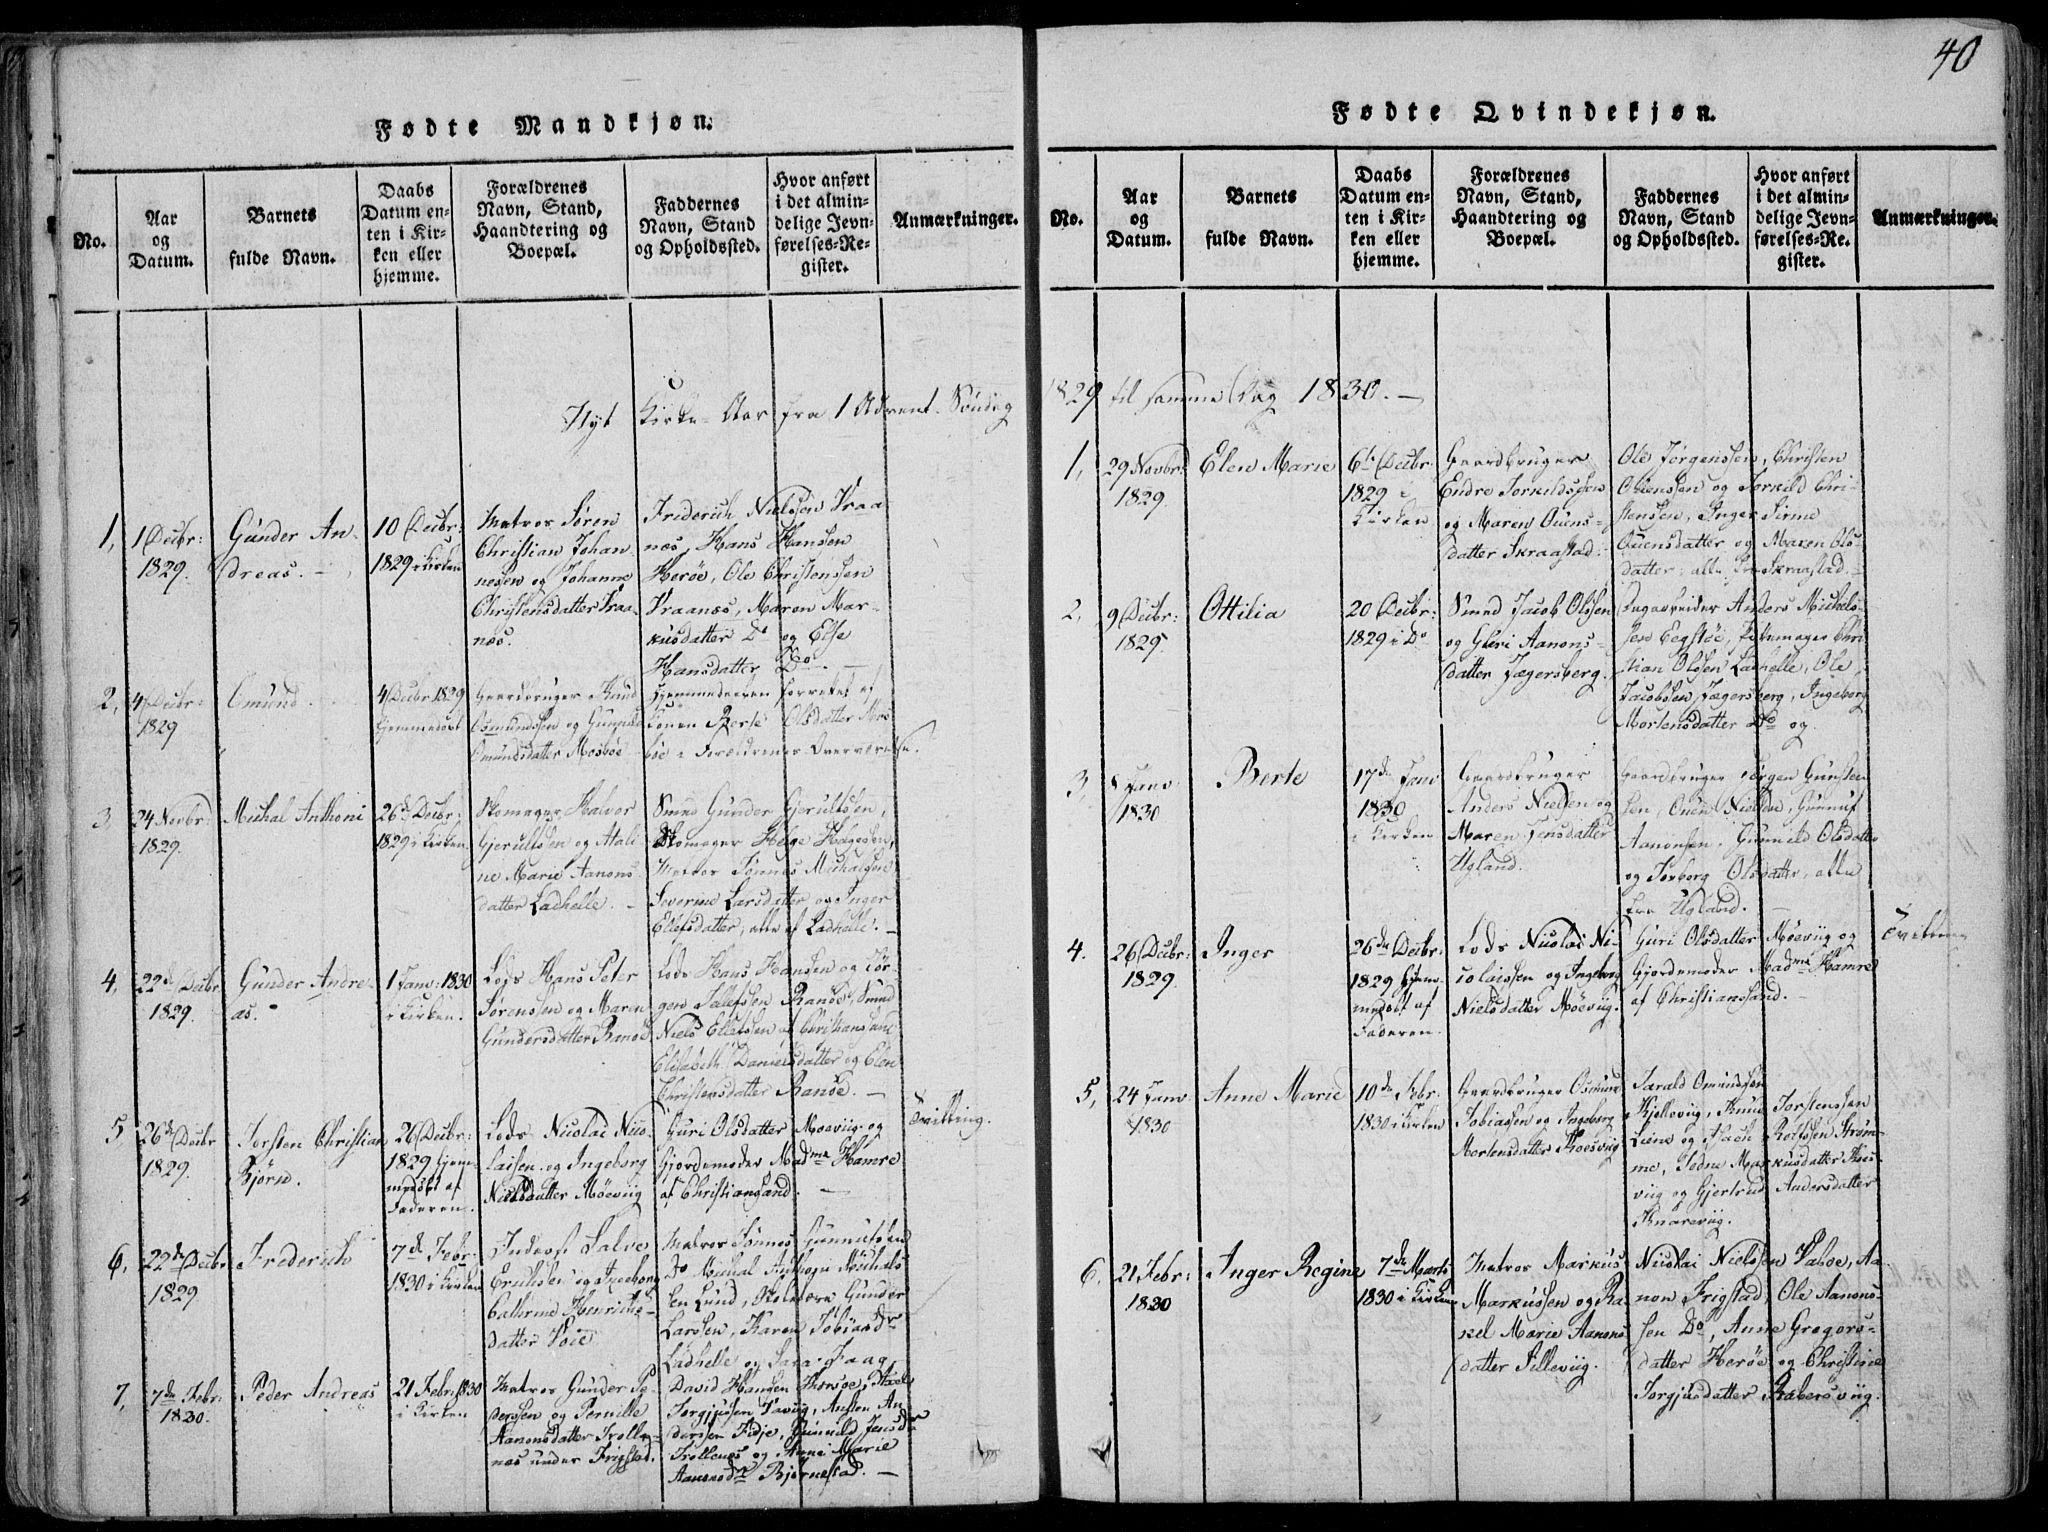 40
Fødte Mandkjøn.
No.
Aar
og
Datum.
Barnets
fulde Navn.
Daabs
Datum en-
ten i Kir-
ken eller
hjemme.
Forældrenes
Navn, Stand,
Haandtering og
Boepæl.
Faddernes
Navn, Stand
og Opholdssted.
Hvor anført
i det almin-
delige Jevn-
førelses-Re-
gister.
Anmærkninger.
Nyt Kirke-Aar fra 1 Advent Søndag
1,
1 Decbr:
1829.
Gunder An-
dreas.
10 Decbr:
1829 i Kirken
Matros Søren
Christian Johan-
nesen og Johanne
Christensdatter Kraa-
næs.
Friderich Nielssen Kraa-
næs, Hans Hansen
Herøe, Ole Christenssen
Kraanæs, Maren Mar-
kusdatter Do og Else
Hansdatter Do.
2,
4 Decbr:
1829
Omund.
4 Decbr 1829
hjemmedøbt
Gaardbruger Knud
Osmundssen og Gunnild
Omundsdatter Mosbøe
Hjemmedaaben forrettet af
Konen Berte Olsdatter Mos-
bøe i Forældrenes Overværelse.
3
24 Novbr:
1829.
Michal Anthoni
26de Decbr:
1829 i Kirken.
Skomager Halvor
Gjerultsen og Atali-
ne Marie Aanons-
datter Ladhelle.
Smed Gunder Gjerultsen,
Skomager Helge
Matros Tønnes Michalsen
Severine Larsdatter og Inger
Ellefsdatter, alle af Ladhelle.
4,
22de Decbr
1829.
Gunder Andre-
as.
1 Janv: 1830
i Kirken.
Lods Hans Peter
Sørenssen og Maren
Gundersdatter Randøe
Lods Hans Hansen og Jør-
gen Tellefssen Randøe, Smed
Niels Ellefssen af Christianssand
Elisabeth Danielsdatter og Elen
Christensdatter Randøe.
5
26de Decbr
1829.
Torsten Christian
Bjørn.
26 Decbr:
1829 hjem-
medøbt af
Faderen.
Lods Nicolai Nico-
laisen og Ingeborg
Nielsdatter Møeviig
Guri Olsdatter Møeviig og
Gjordemoder Madme Hamre
af Christianssand.
Tvilling.
6,
22de Decbr
1829
Frederich
7de Febr:
1830 i Kirken
Inderst Salve
Erichsen og Ingeborg
Cathrine Henrichs-
datter Voie
Matros Tønnes Gunnufsen
Do Michal Anthon Michels-
sen Lund, Gunder
Larssen, Karen Tobiasdr
Ladhelle og Sara Faag
7,
7de Febr:
1830.
Peder Andreas
21 Febr: 1830
i Kirken
Matros Gunder Pe-
derssen og Pernille
Aanonsdatter Trolle-
næs under Frigstad.
David Hansen
Torgjussen Vaviig, Austen An-
derssen Fidje, Gunnild Jensdr
Trollenæs og Anne Marie
Aanonsdr Bjørnestad.
Fødte Qvindekjøn.
No.
Aar
og
Datum.
Barnets
fulde Navn.
Daabs
Datum en-
ten i Kir-
ken eller
hjemme.
Forældrenes
Navn, Stand,
Haandtering og
Boepæl.
Faddernes
Navn, Stand
og Opholdssted.
Hvor anført
i det almin-
delige Jevn-
førelses-Re-
gister.
Anmærkninger.
1829 til samme Dag 1830.
1,
29 Novbr:
1829.
Elen Marie
6te Decbr:
1829 i
Kirken
Gaardbruger
Endre Torkildssen
og Maren Ouens-
datter Skraastad.
Ole Jørgenssen, Christen
Ouenssen og Torkild Chri-
stenssen, Inger Sirine
Ouensdatter og Maren Ols-
datter, alle fra Skraastad.
2,
9 Decbr:
1829.
Ottilia
20 Decbr:
1829 i Do
Smed Jacob Olssen
og Guri Aanons-
datter Jægersberg.
Anders Michels-
sen Eegstøe, Chri-
stian Olssen Ladhelle, Ole
Jacobssen Jægersberg, Ingeborg
Mortensdatter Do og
3,
8 Janv
1830
Berte
17de Janv
1830
i Kirken
Gaardbruger
Anders Nielsen og
Maren Jensdatter
Ugland.
Gaardbruger Jørgen
sen, Ouen Nielsen, Gunnuf
Aanonsen, Gunnild Olsdatter
og Torborg Olsdatter, alle
fra Ugland.
4.
26 Decbr:
1829.
Inger
26de Decbr:
1829 hjem-
medøbt af
Faderen.
Lods Nicolai Ni-
colaissen og Ingeborg
Nielsdatter Møeviig.
Guri Olsdatter Møeviig og
Gjordemoder Madme Hamre
af Christianssand.
Tvilling
5,
24 Janv
1830
Anne Marie
10de Febr.
1830 i Kirken
Gaardbruger Osmund
Tobiassen og Ingeborg
Mortensdatter Kosviig
Tarald Omundssøn
Kjelleviig, Knud Torstenssen
Liene og Isach Rolfssen Strøm-
me, Marcusdatter Kos-
viig og Gjertrud Andersdatter
Knareviig.
6.
21 Febr:
1830
Inger Regine
7de Marts
1830 i Kirken
Matros Markus
Markussen og Ra-
kel Marie Aanons-
datter Silleviig.
Nicolai Nielssen Valsøe, Aa-
non Frigstad, Ole Aanons-
sen Do, Anne Gregors-
datter Herøe og Christine
Torgjusdatter Rabersviig.